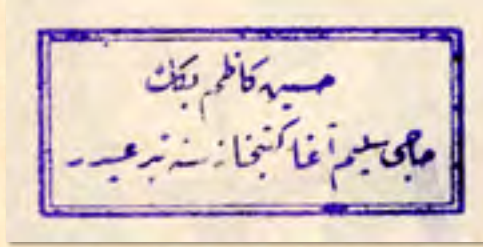 حسين كاظم بكك
حاجى سليم آغا كتبخانه سنه تبرعيدر